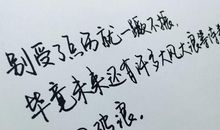 别受了点伤就一蹶不振,
毕竟未来还有许多大风大浪等你
浪.